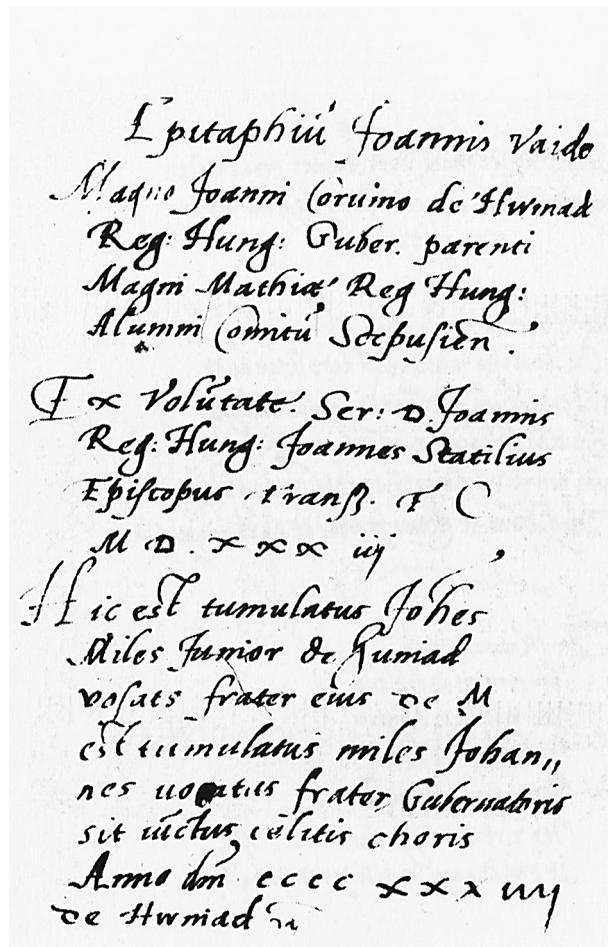 Epitaphiū Joannis Vaide
Magno Joanni Corvino de Hwniad
Reg: Hung: Guber. parenti
Magni Mathiæ Reg Hung:
Alumni Comitū Scepusien.
Ex Volūtate. Ser: D. Joannis
Reg: Hung: Joannes Statilius
Episcopus transß. F C
M D . x x x iiij
Hic est tumulatus Johēs
Miles Junior de huniad
vosats frater eius de M
est tumulatus miles Johan„
nes uocatus frater Gubernatoris
sit iūctus celitis choris
Anno dm̄ c c c c x x x x iiij
de Hwniad